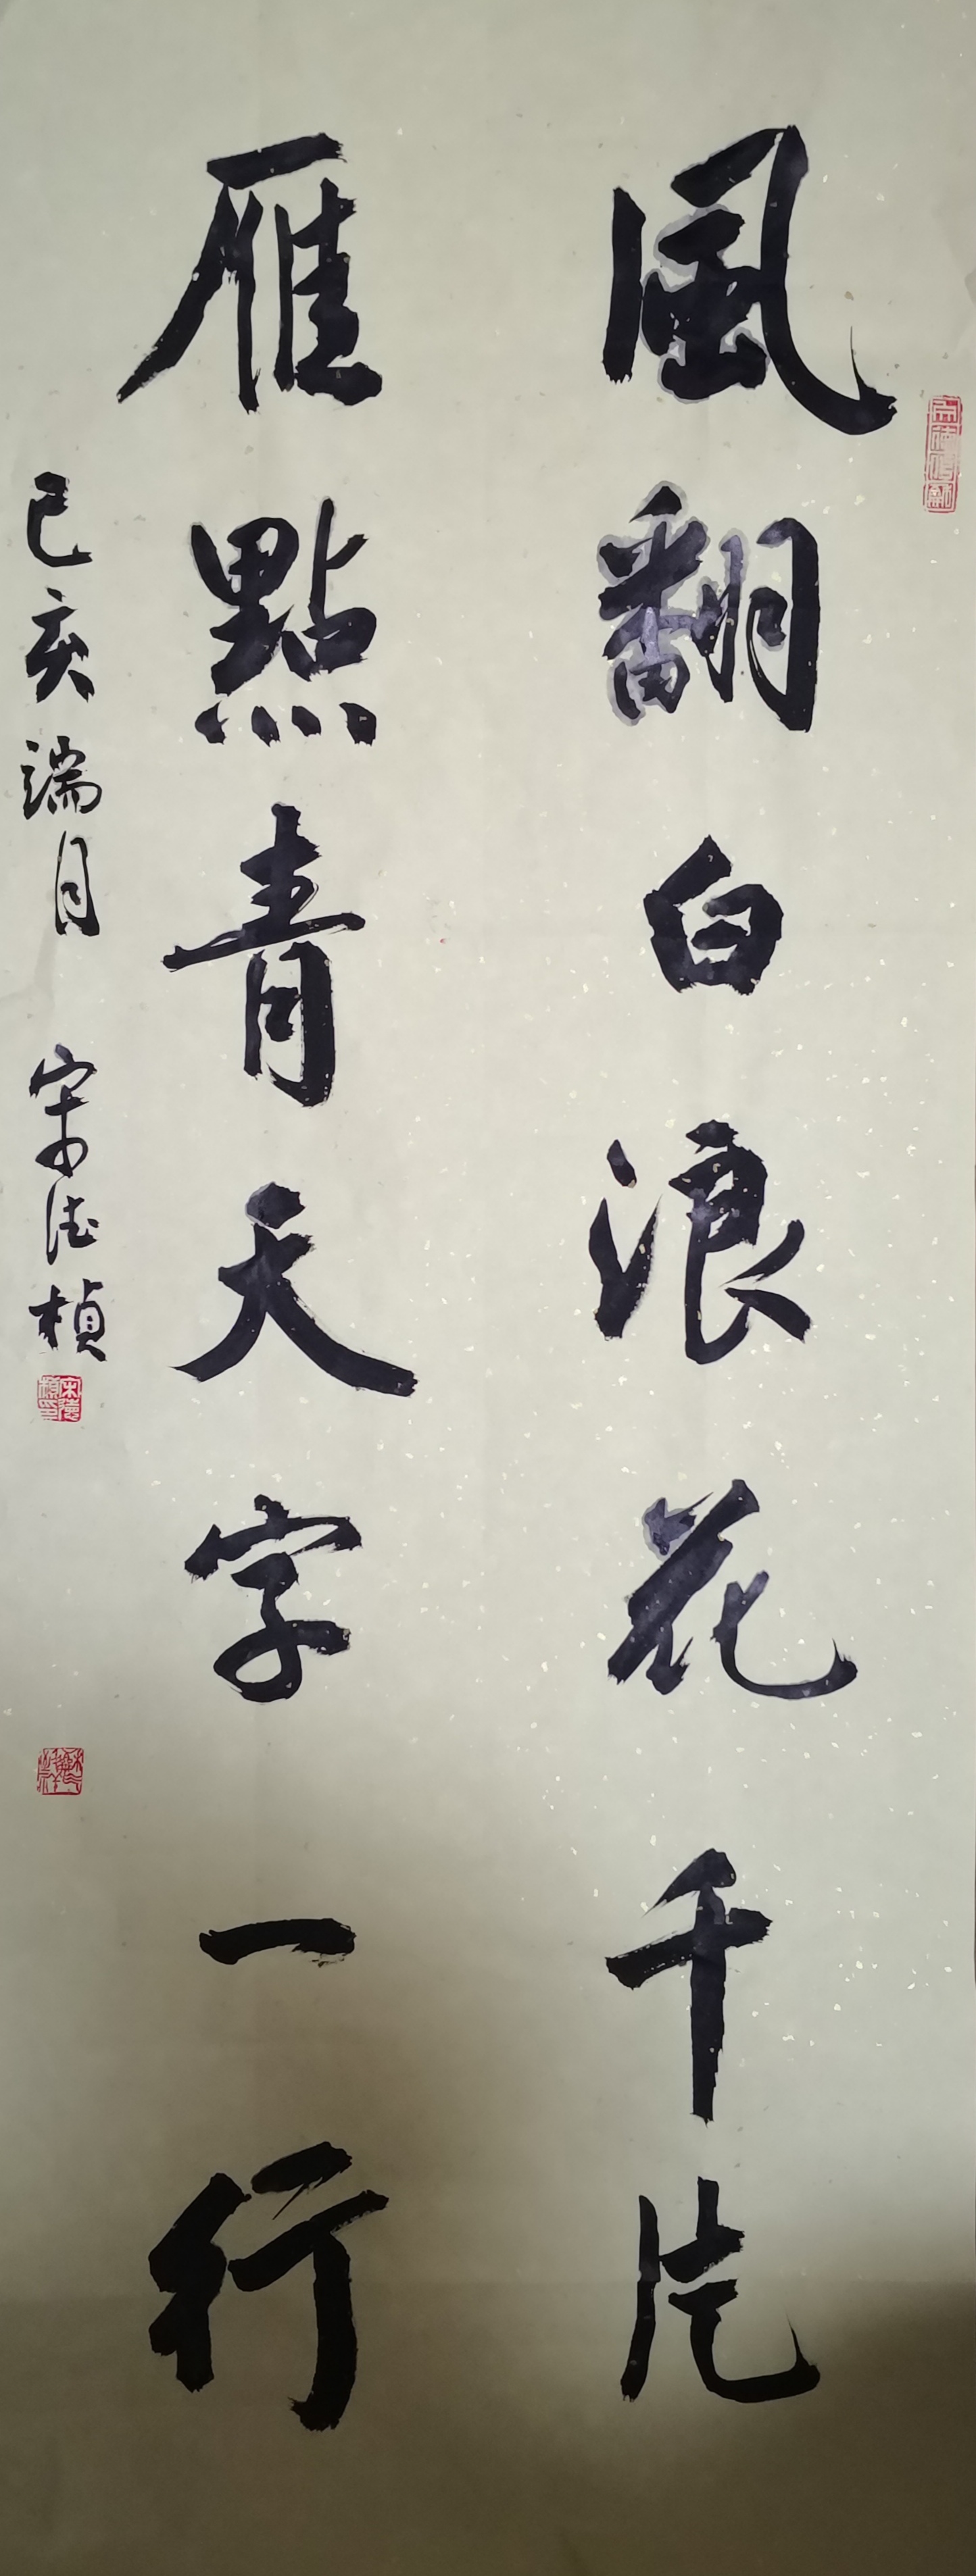 風翻白浪花千片
雁點青天字一行
己亥端月 宋德楨
宋德楨印